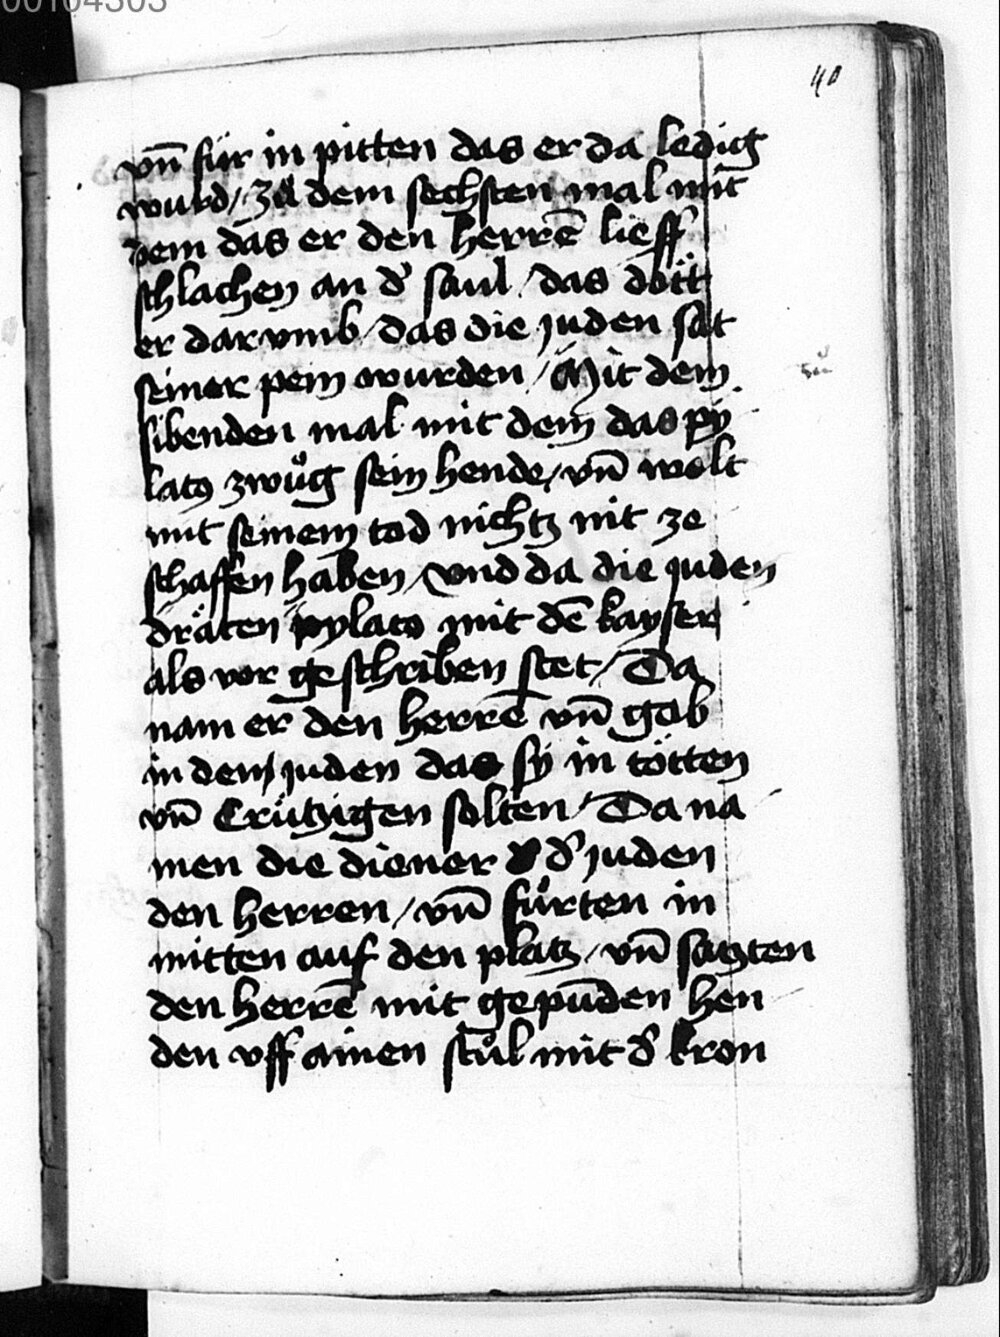 00104303
40
vn̄ für in pitten das er da ledig
wurd / zů dem sechsten mal mit
dem das er den herrē lieff
schlachen an d' saul / das dött
er dar vmb / das die juden sat
seiner pein wurden / Mit dem
sibenden mal mit dem das py
latꝯ zwůg sein hende / vn̄ wolt
mit seinem tod nichtz nit ze
schaffen haben / vnd da die juden
dräten pylato mit dē kayser
als vor geschriben stet / Da
nam er den herrē vn̄ gab
in den juden das sÿ in tötten
vn̄ Crützigen solten / Da na
men die diener d' juden
den herren / vn̄ fůrten in
mitten auf den platz / vn̄ saczten
den herrē mit gepūden hen
den vff ainen stůl mit d' kron